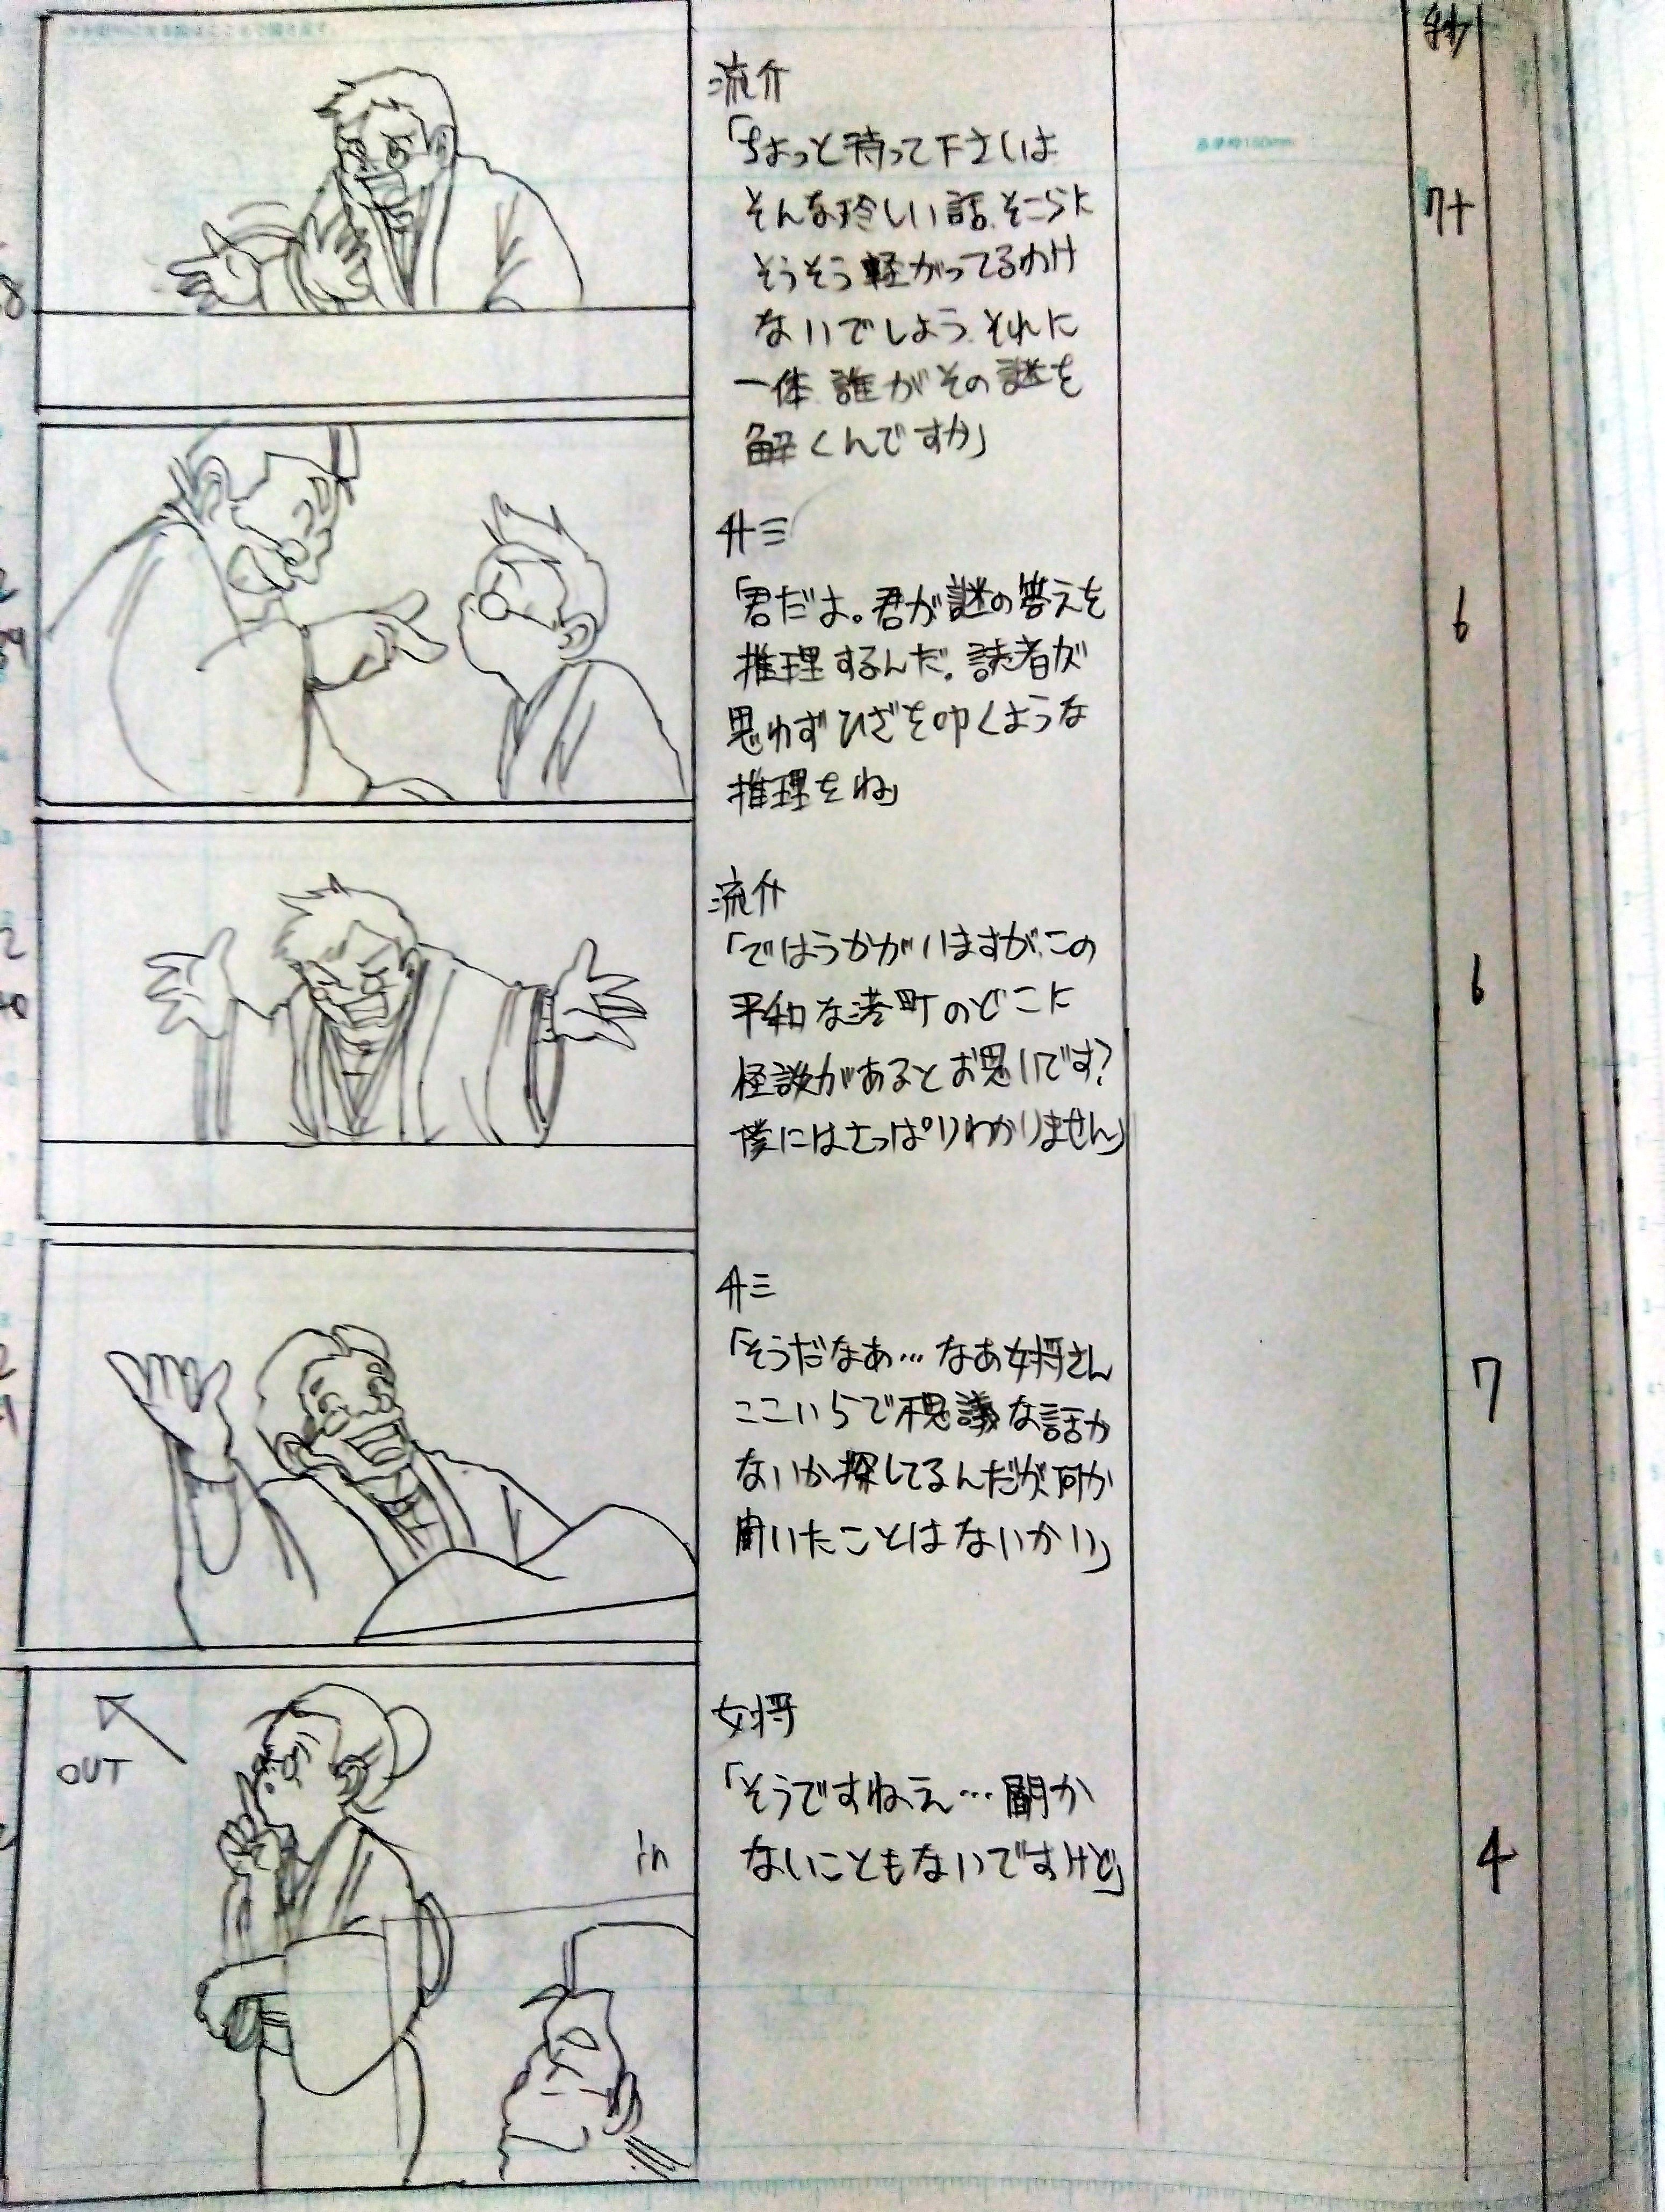 秒
流介
「ちょっと待って下さいよ
そんな珍しい話、そこらに
そうそう転がってるわけ
ないでしょう、それに
一体、誰がその謎を
解くんですか」
7+
升三
「君だよ。君が謎の答えを
推理するんだ。読者が
思わずひざを叩くような
推理をね」
6
流介
「ではうかがいますが、この
平和な港町のどこに
怪談があるとお思いです?
僕にはさっぱりわかりません」
6
升三
「そうだなあ…なあ女将さん
ここいらで不思議な話か
ないか探してるんだが、何か
聞いたことはないかい」
7
OUT
in
女将
「そうですねえ…聞か
ないこともないですけど」
4